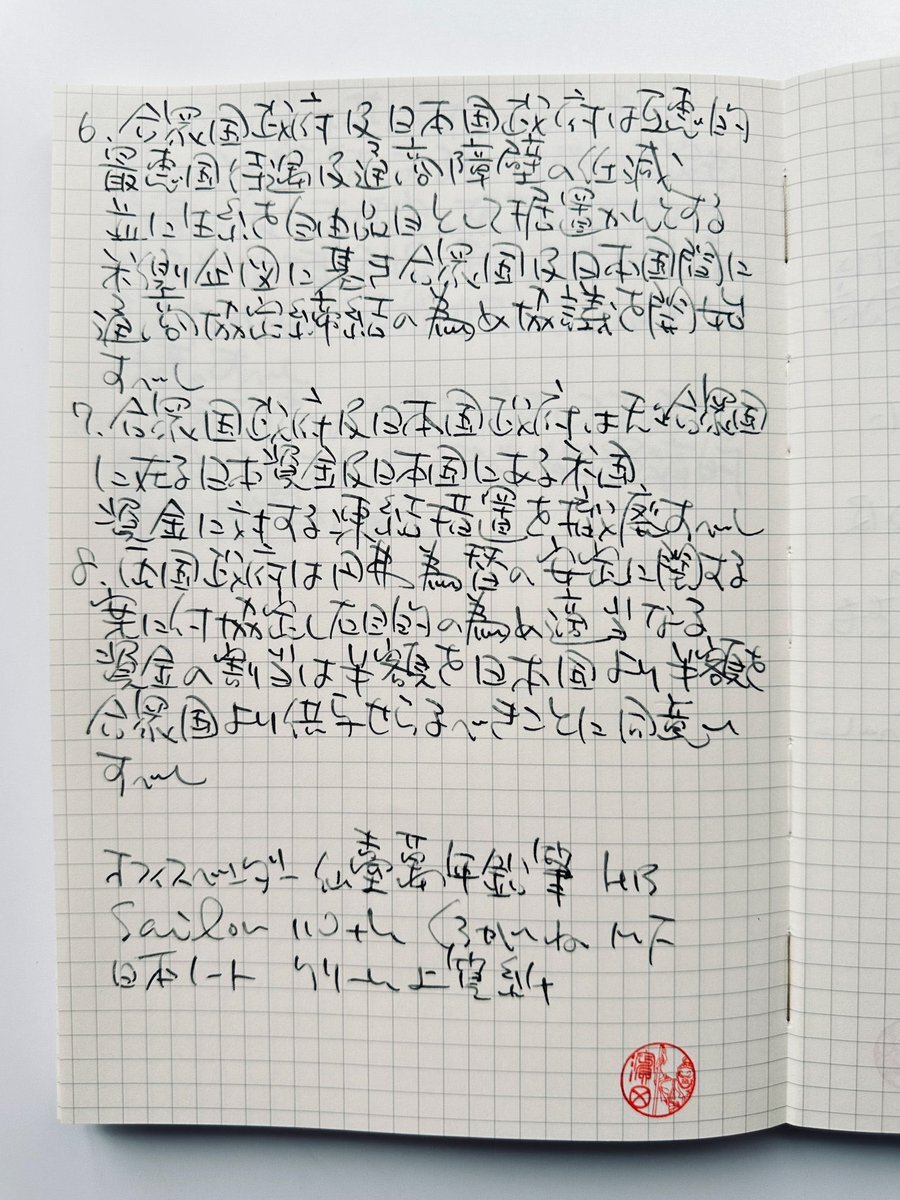 6. 合衆国政府及日本国政府は互恵的
最恵国待遇及通商障壁の低減
並に生糸を自由品目として据置かんとする
米側企図に基き合衆国及日本国間に
通商協定締結の為め協議を開始
すべし
7. 合衆国政府及日本国政府は夫々合衆国
に在る日本資金及日本国にある米国
資金に対する凍結措置を撤廃すべし
8. 両国政府は円弗為替の安定に関する
案に付協定し右目的の為め適当なる
資金の割当は半額を日本国より半額を
合衆国より供与せらるべきことに同意
すべし
オフィスベンダー 仙臺萬年鉛筆 HB
Sailor 110th MF
日本ノート クリーム上質紙
濱田